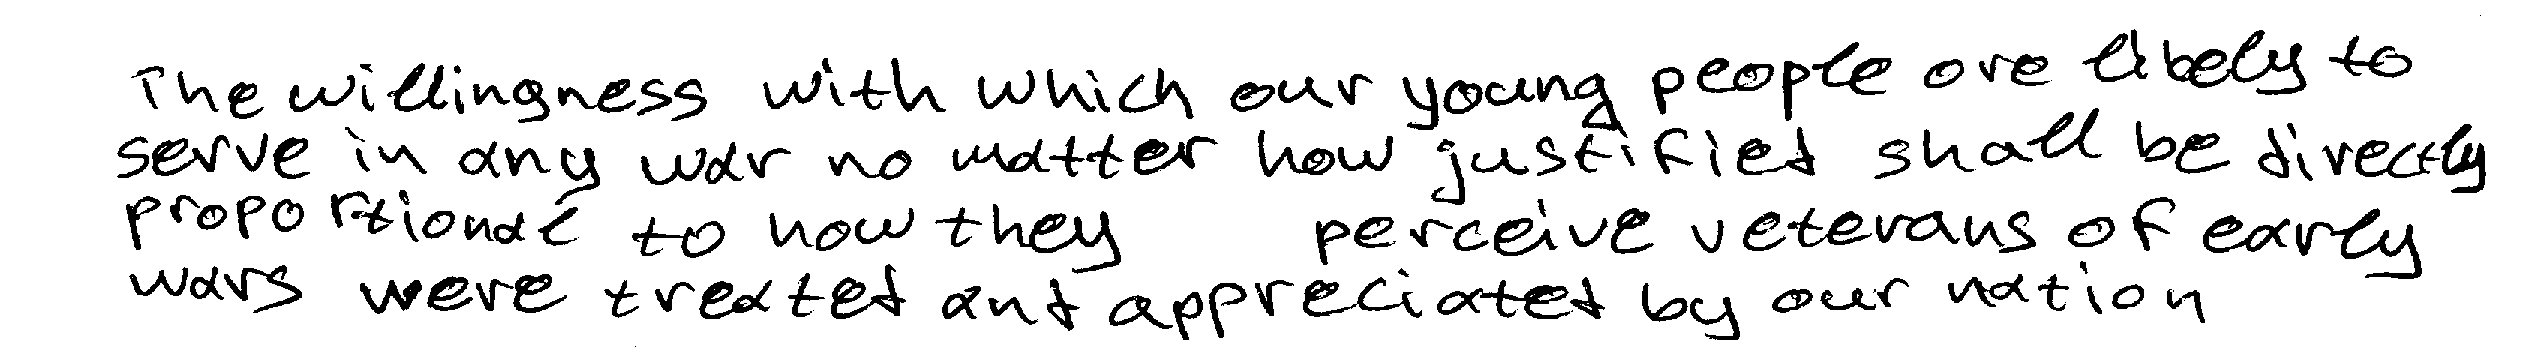 The willingness with which our young people are likely to
serve in any war no matter how justified shall be directly
proportional to how they perceive veterans of early
wars were treated and appreciated by our nation